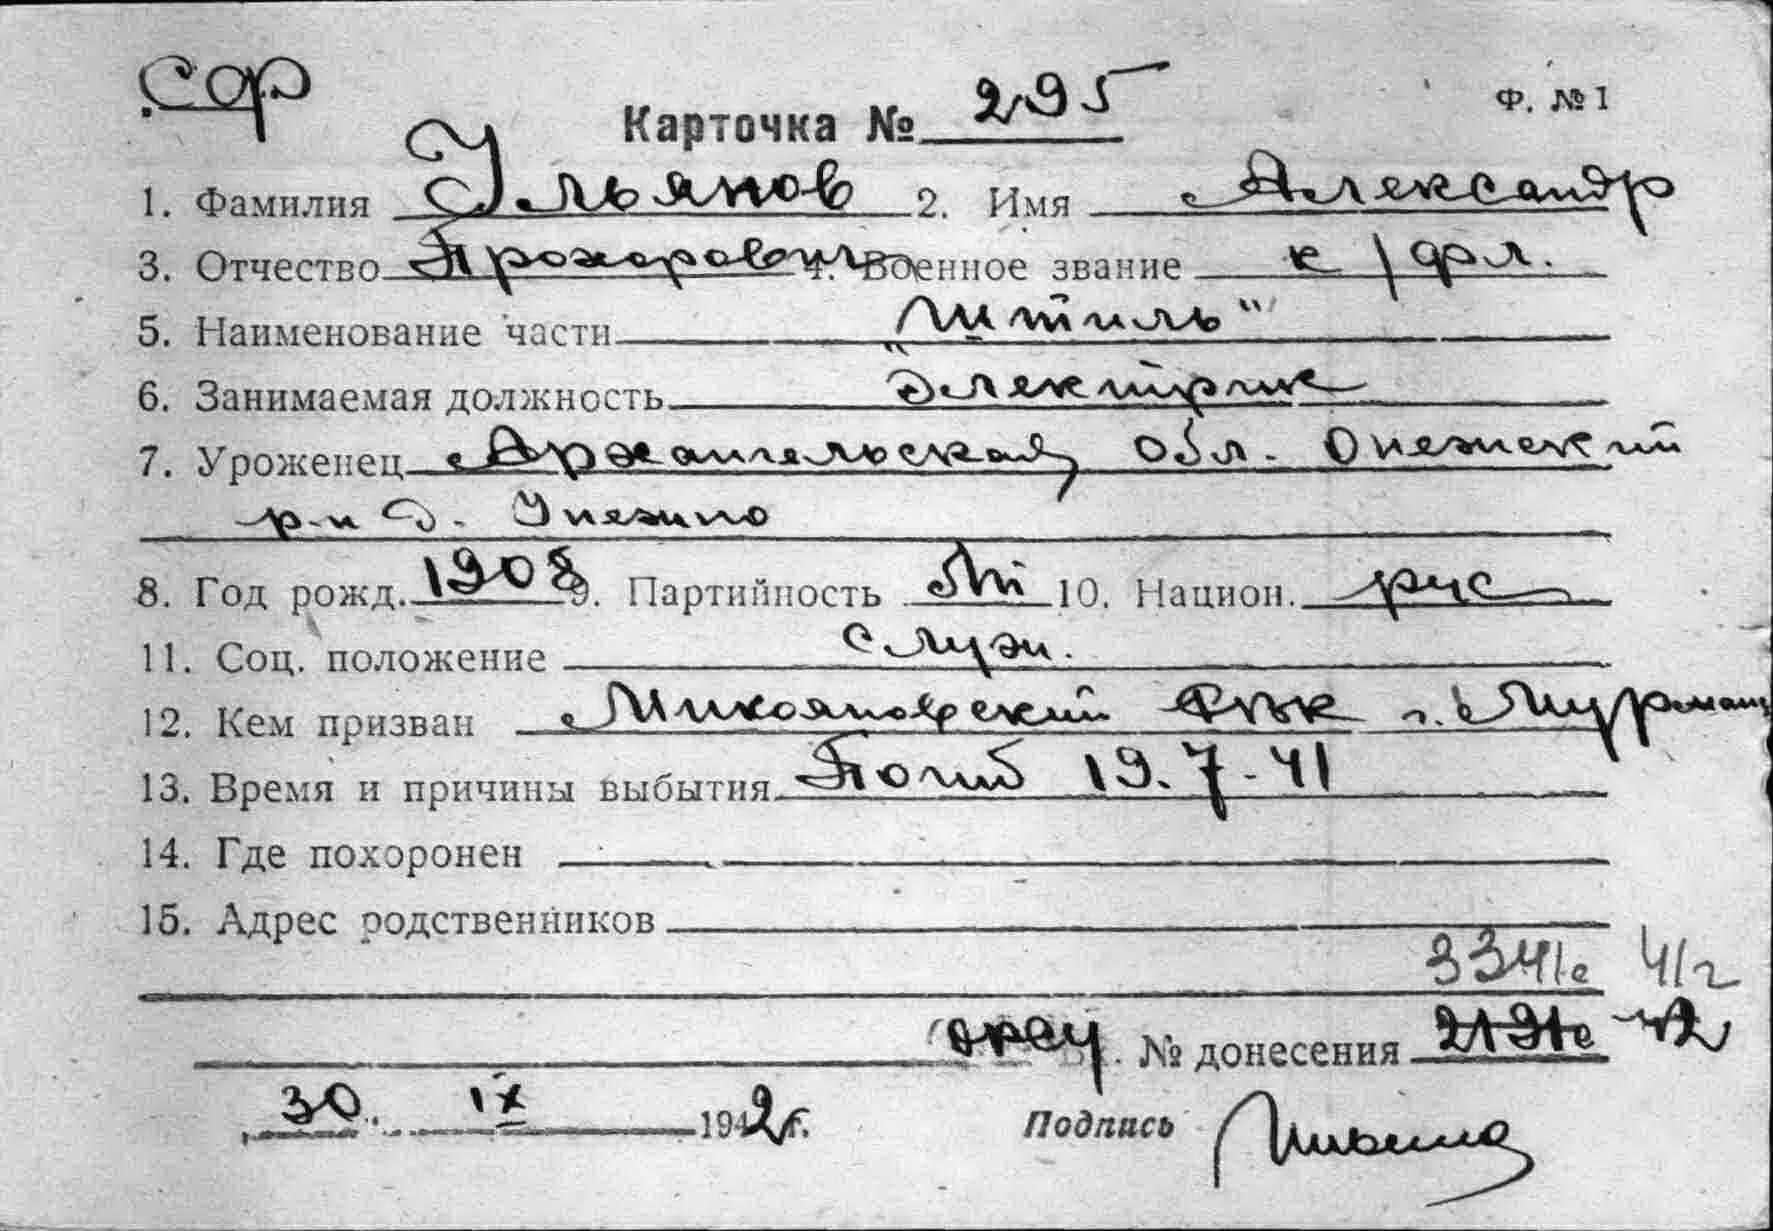 СФ
Карточка № 295 Ф. № 1
1. Фамилия Ульянов 2. Имя Александр
3. Отчество Прохорович 4. Военное звание к/фл.
5. Наименование части „Штиль"
6. Занимаемая должность Электрик
7. Уроженец Архангельская обл. Онежский
р-н д. Унежма
8. Год рожд. 1908 9. Партийность 10. Национ. рус
11. Соц. положение служ.
12. Кем призван Микояновский РВК г. Мурманск
13. Время и причины выбытия Погиб 19.7-41
14. Где похоронен
15. Адрес родственников
3341с 41г
№ донесения 2191с 42
30. IX 1942г.
Подпись